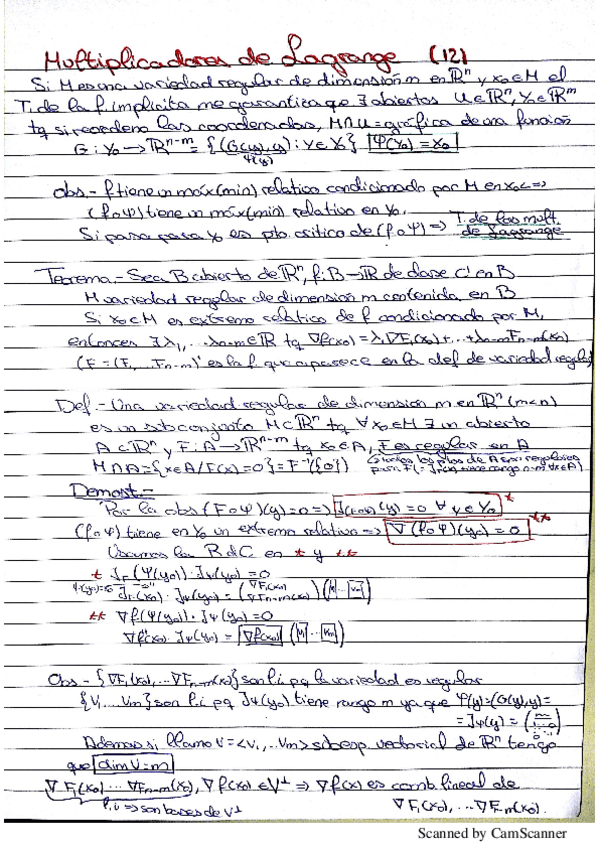 Multiplicadores de Lagrange (12)
Si M es una variedad regular de dimensión m en ℝⁿ y x₀∈M el
T. de la f implícita me garantiza que ∃ abiertos U∈ℝⁿ, Y₀∈ℝᵐ
tq si reordeno las coordenadas, M∩U = gráfica de una función
G: Y₀ → ℝⁿ⁻ᵐ = {(G(y), y) : y∈Y₀} Ψ(y₀) = x₀
Ψ(y)
obs.- f tiene un máx (min) relativo condicionado por M en x₀ <=>
(f∘Ψ) tiene un máx (min) relativo en y₀.
Si pasa pasa y₀ es pto. crítico de (f∘Ψ) => T. de los mult. de Lagrange
Teorema.- Sea B abierto de ℝⁿ, f: B → ℝ de clase C¹ en B
M variedad regular de dimensión m contenida en B
Si x₀∈M es extremo relativo de f condicionado por M,
entonces ∃ λ₁, ... λn-m ∈ ℝ tq ∇f(x₀) = λ₁∇F₁(x₀) + ... + λn-m Fn-m(x₀)
(F = (F₁, ... Fn-m) es la f que aparece en la def de variedad regular)
Def.- Una variedad regular de dimensión m en ℝⁿ (m<n)
es un subconjunto M⊂ℝⁿ tq ∀ x₀∈M ∃ un abierto
A⊂ℝⁿ y F: A → ℝⁿ⁻ᵐ tq x₀∈A, F es regular en A
M∩A = {x∈A / F(x) = 0} = F⁻¹({0})
Demost.-
Por la obs (F∘Ψ)(y) = 0 => J(F∘Ψ)(y) = 0 ∀ y∈Y₀ *
(f∘Ψ) tiene en y₀ un extremo relativo => ∇(f∘Ψ)(y₀) = 0 **
Usamos la RdC en * y **
* JF(Ψ(y₀)) · JΨ(y₀) = 0
Ψ(y₀)=x₀ JF(x₀) · JΨ(y₀) = (∇F₁(x₀) ... ∇Fn-m(x₀)) (V₁ ... Vm)
** ∇f(Ψ(y₀)) · JΨ(y₀) = 0
∇f(x₀) · JΨ(y₀) = ∇f(x₀) (V₁ ... Vm)
Obs.- {∇F₁(x₀), ... ∇Fn-m(x₀)} son l.i. pq la variedad es regular
{V₁ ... Vm} son l.i. pq JΨ(y₀) tiene rango m ya que Ψ(y) = (G(y), y) =
= JΨ(y) =
Además si llamo V = <V₁, ... Vm> subesp. vectorial de ℝⁿ tengo
que dim V = m
∇F₁(x₀) ... ∇Fn-m(x₀), ∇f(x₀) ∈ V⊥ => ∇f(x) es comb. lineal de
l.i. => son bases de V⊥ ∇F₁(x₀), ... ∇Fn-m(x₀).
Scanned by CamScanner